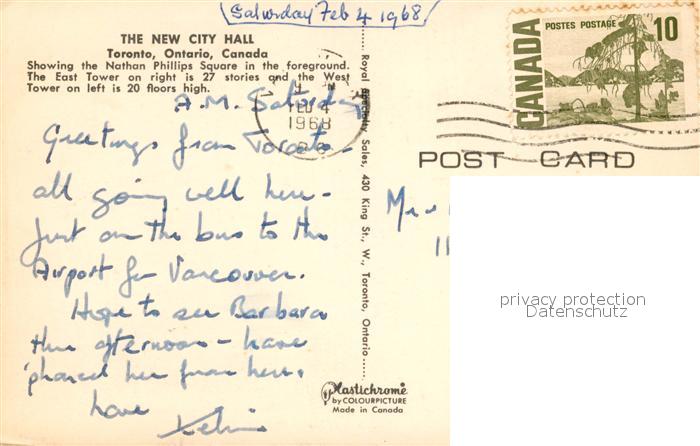 Saturday Feb 4 1968
THE NEW CITY HALL
Toronto, Ontario, Canada
Showing the Nathan Phillips Square in the foreground.
The East Tower on right is 27 stories and the West
Tower on left is 20 floors high.
A.M. Saturday
Greetings from Toronto -
all going well here -
Just on the bus to the
Airport for Vancouver.
Hope to see Barbara
this afternoon - have
'phoned her from here.
love
Royal Specialty Sales, 430 King St., W., Toronto, Ontario
Plastichrome
by COLOURPICTURE
Made in Canada
1968
CANADA
POSTES POSTAGE
10
POST CARD
11
privacy protection
Datenschutz